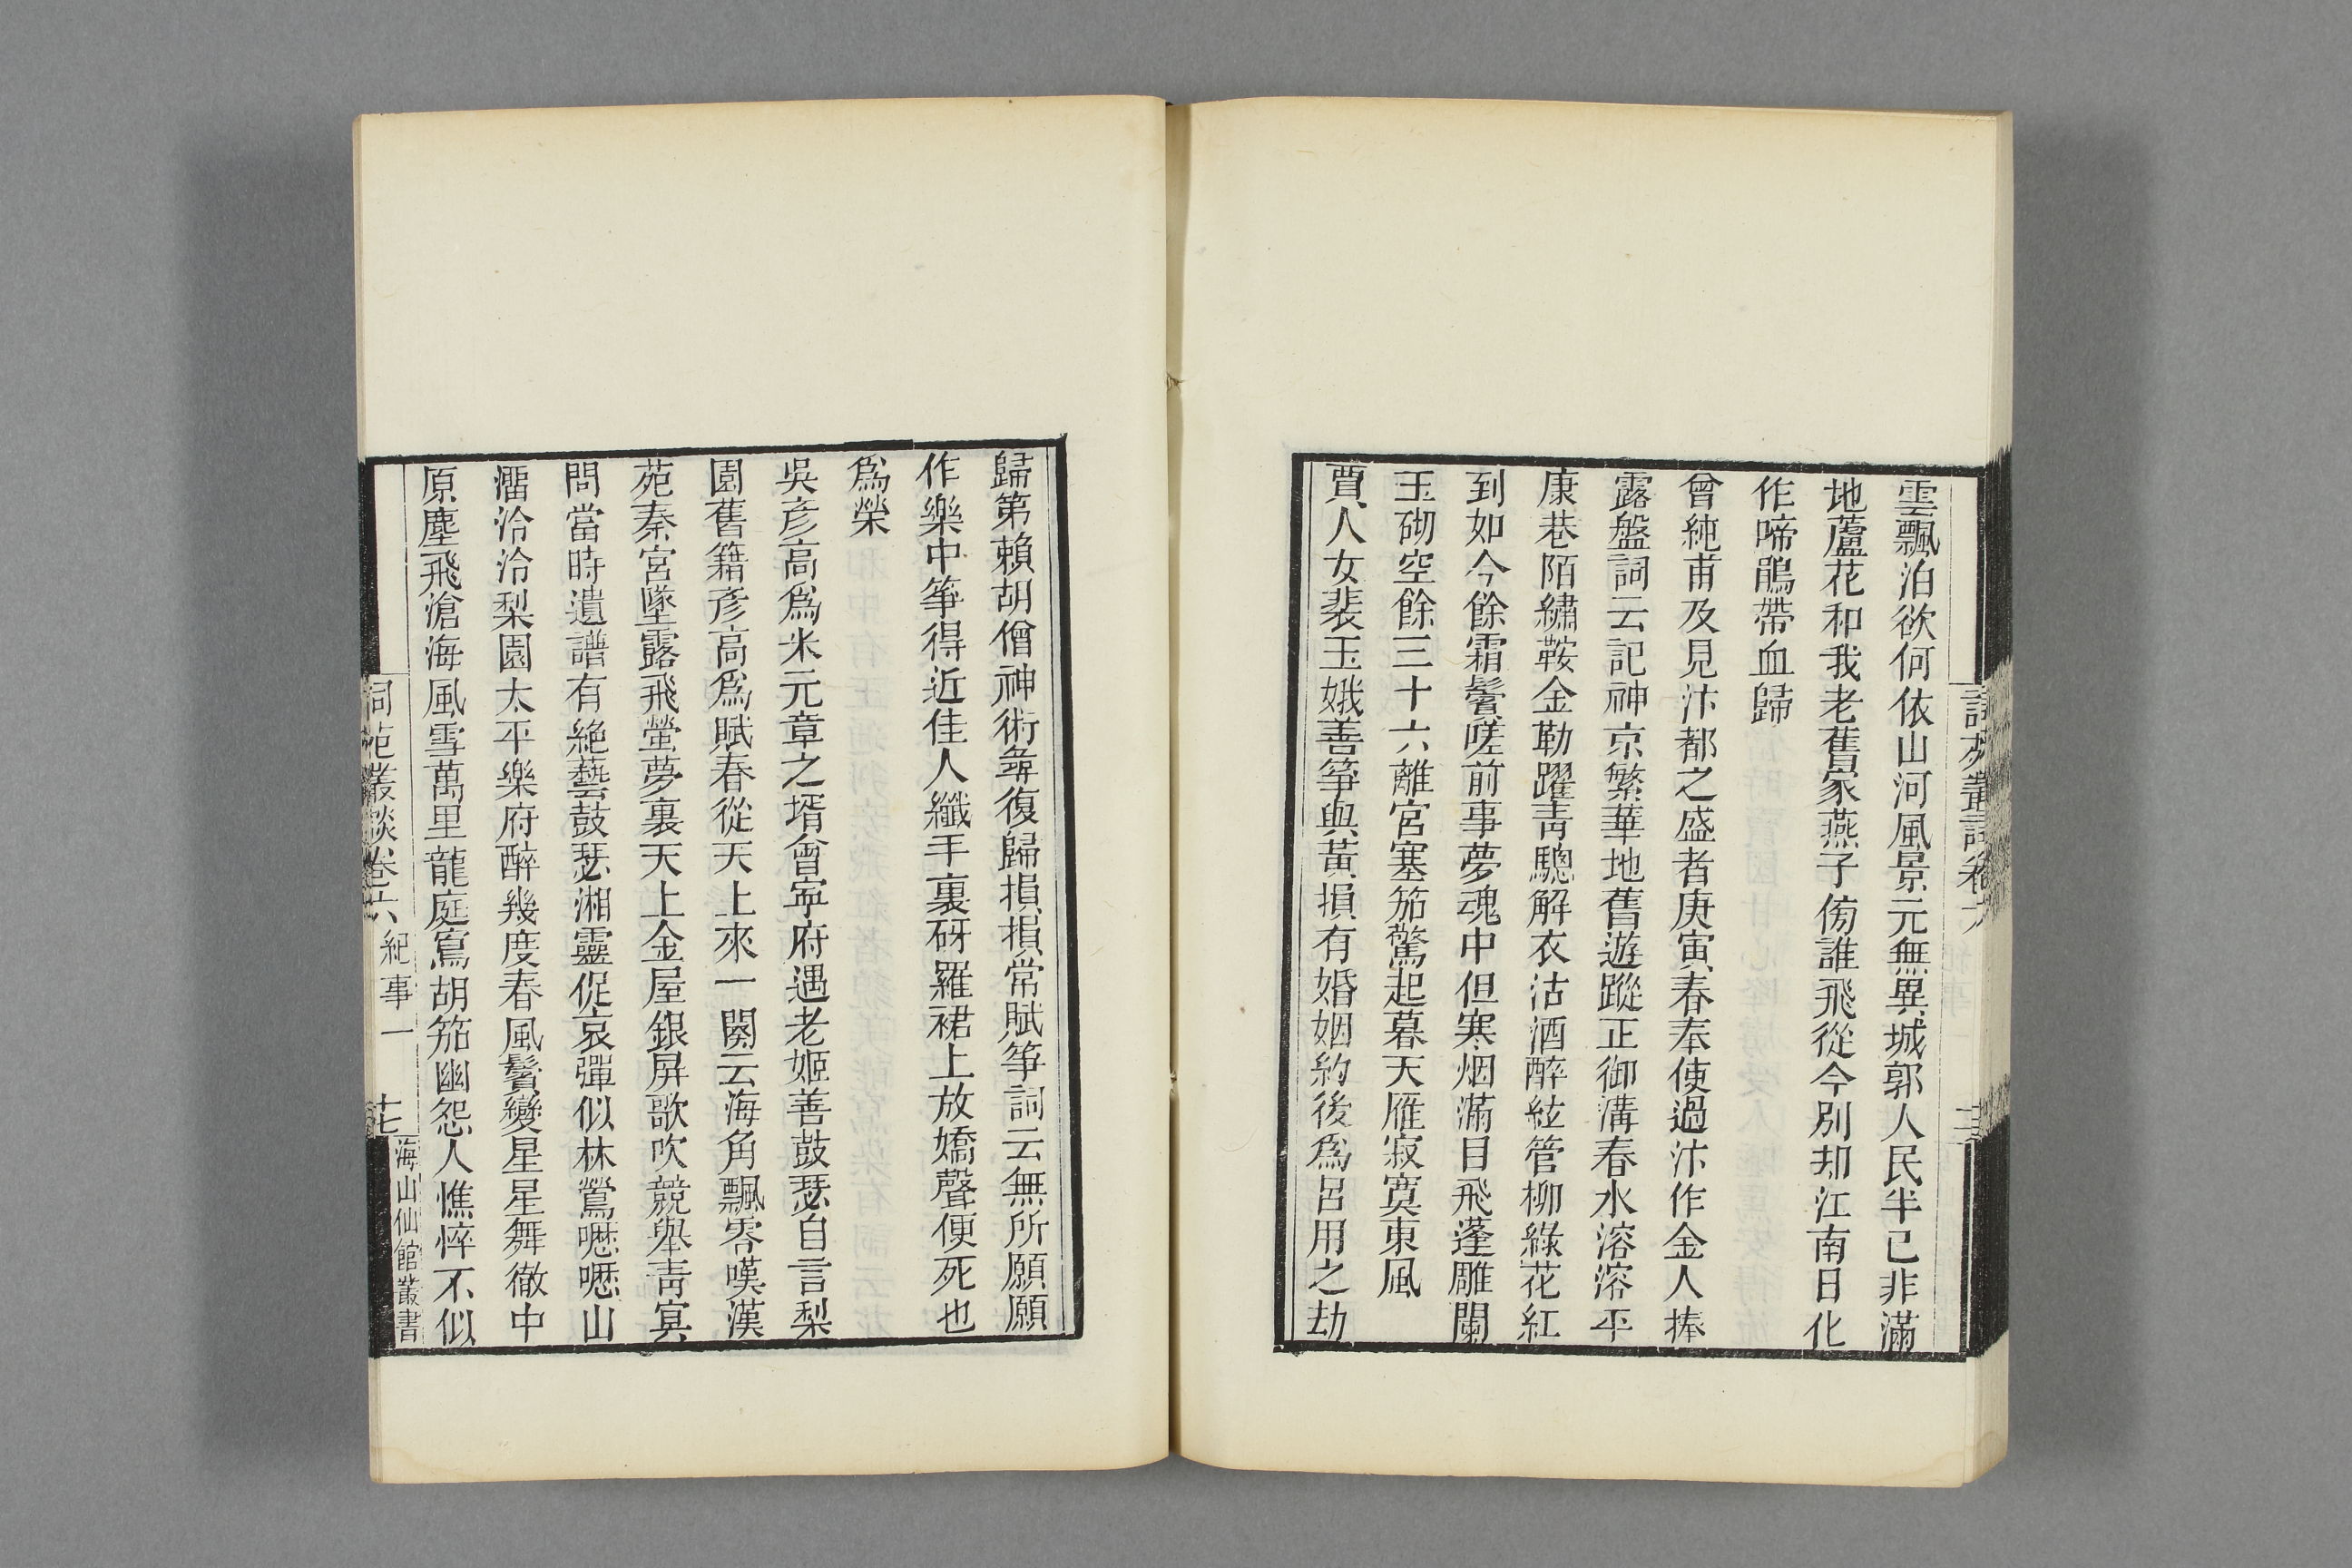 雲飄泊欲何依山河風景元無異城郭人民半已非滿
地蘆花和我老舊家燕子傍誰飛從今別却江南日化
作啼鵑帶血歸
曾純甫及見汴都之盛者庚寅春奉使過汴作金人捧
露盤詞云記神京繁華地舊遊蹤正御溝春水溶溶平
康巷陌繡鞍金勒躍靑驄解衣沽酒醉絃管柳綠花紅
到如今餘霜鬢嗟前事夢魂中但寒烟滿目飛蓬雕闌
玉砌空餘三十六離宮塞笳驚起暮天雁寂寞東風
賈人女裴玉娥善箏與黃損有婚姻約後爲呂用之劫
歸第賴胡僧神術尋復歸損損常賦箏詞云無所願願
作樂中箏得近佳人纖手裏砑羅裙上放嬌聲便死也
爲榮
吳彥高爲米元章之壻會寧府遇老姬善鼓瑟自言梨
園舊籍彥高爲賦春從天上來一闋云海角飄零嘆漢
苑秦宮墜露飛螢夢裏天上金屋銀屏歌吹競舉靑冥
問當時遺譜有絕藝鼓瑟湘靈促哀彈似林鶯嚦嚦山
溜泠泠梨園太平樂府醉幾度春風鬢變星星舞徹中
原塵飛滄海風雪萬里龍庭寫胡笳幽怨人憔悴不似
詞苑叢談卷六 紀事一 十七 海山仙館叢書